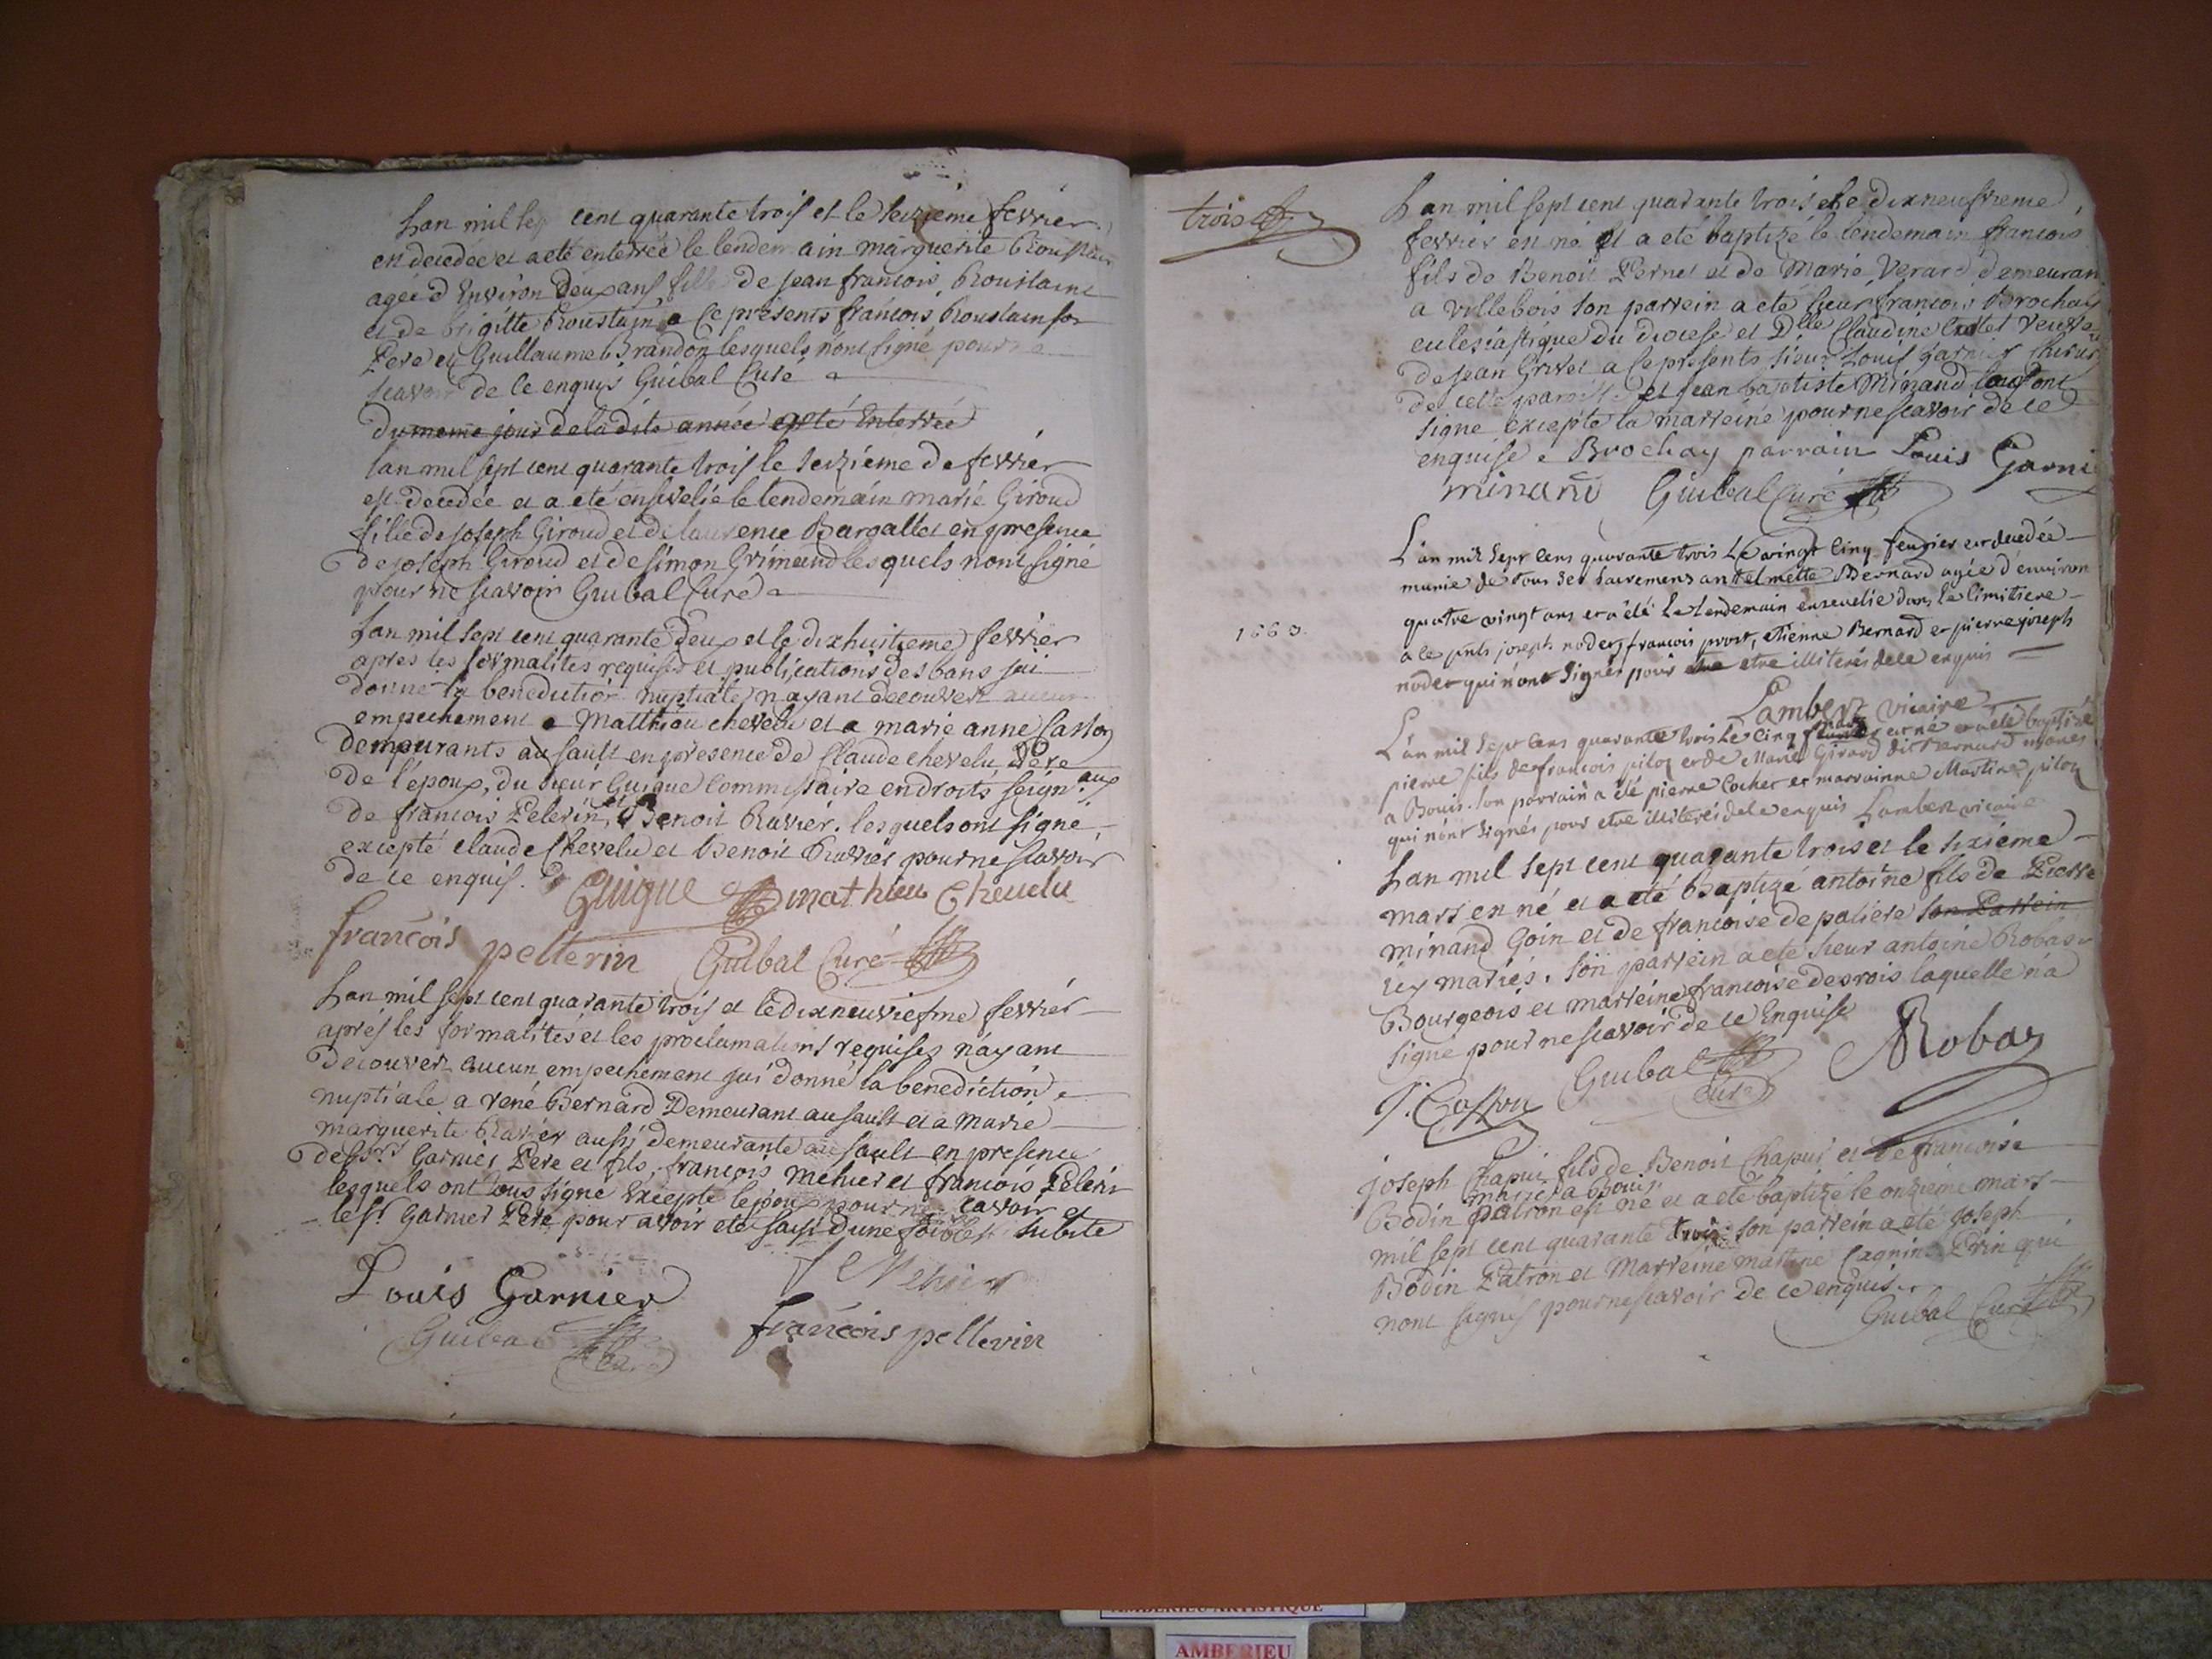 Lan mil sep cent quarante trois et le seizieme fevrier
en decedée et a eté enterrée le lendemain marguerite Roustain
agée d Environ deux ans fille de jean francois Roustaint
et de brigitte Roustain a ce présents francois Roustain son
Pere et Guillaume Brandon lesquels nont signé pour ne
scavoir de ce enquis Guibal Curé
Du meme jour de la dite année a eté Enterrée
lan mil sept cent quarante trois le seizieme de fevrier
est decedée et a eté ensevelie le lendemain marie Giroud
fille de joseph Giroud et de laurence Bargallet en presence
de joseph Giroud et de simon Grimaud lesquels nont signé
pour ne scavoir Guibal Curé
Lan mil sept cent quarante deux et le dixhuitieme fevrier
apres les formalites requises et publications des bans jai
donné la benediction nuptiale nayant decouvert aucun
empechement a Matthieu chevelu et a marie anne Caston
demeurants au sault en presence de Claude chevelu Pere
de l'époux, du sieur Guigue Commissaire en droits seign.aux
de francois Pelerin, et Benoit Ravier. lesquels ont signé,
excepté claude Chevelu et benoit Ravier pour ne scavoir
de ce enquis.
Guigue mathieu Cheuelu
francois pelterin Guibal Curé
Lan mil sept cent quarante trois et le dixneuviesme fevrier
aprés les formalités et les proclamations requises n'ayant
decouvert aucun empechement jai donné la benediction
nuptiale a rené Bernard Demeurant au sault et a Marie
marguerite Ravier aussi demeurante au sault en presence
des srs Garnier Pere et fils, francois Mehier et francois Pelerin
lesquels ont tous signé Excepté lepoux pour ne scavoir et
le sr Garnier Pere pour avoir eté saisi dune foiblesse subite
Louis Garnier Mehier
Guibal Curé francois pelterin
trois
Lan mil sept cent quarante trois et le dixneufvieme
fevrier est né et a eté baptizé le lendemain francois
fils de Benoit Pernet et de Marie Verard demeurant
a villebois son parrein a eté sieur francois Brochay
eclesiastique du diocese et Dlle Claudine veuve
de jean Grivet a ce presents sieur Louis garnier Chirur
de cette paroisse et jean baptiste Minand lesq ont
signé excepté la marreine pour ne scavoir de ce
enquise Brochay parrain Louis Garni
minand Guibal Curé
1663.
L'an mil sept cens quarante trois Le vingt cinq feurier est decedée
munie de tous ses sacremens anthelmette Bernard agée d'enuiron
quatre vingt ans et a été Le lendemain enseuelie dans le cimitiere
a ce pnts joseph nodet, francois prost, etienne Bernard et pierre joseph
nodet qui n'ont signés pour etre illiterés de ce enquis
Lambert vicaire
L'an mil sept cens quarante trois Le cinq mars est né et a été baptisé
pierre fils de francois piloz et de Marie Girard dit Bernard mariés
a Bouis. son parrain a été pierre Cocher et marrainne Martine piloz
qui n'ont signés pour etre illiterés de ce enquis Lambert vicaire
Lan mil sept cent quarante trois et le sixième
mars est né et a eté Baptizé antoine fils de Pierre
minand Goin et de francoise depaliere son Parrein
mariés. son parrein a eté sieur antoine Robaz
Bourgeois et marreine francoise desrois laquelle n'a
signé pour ne scavoir de ce Enquise
J. Caston Guibal Curé ARobaz
joseph Chapui fils de Benoit Chapui et de francoise
mariés a Bouis
Bodin Patron est né et a eté baptizé le onzieme mars
mil sept cent quarante trois son parrein a eté joseph
Bodin Patron et Marreine martine Cagnin Prin qui
nont signés pour ne scavoir de ce enquis
Guibal Curé
AMBERIEU ARTISTIQUE
AMBERIEU